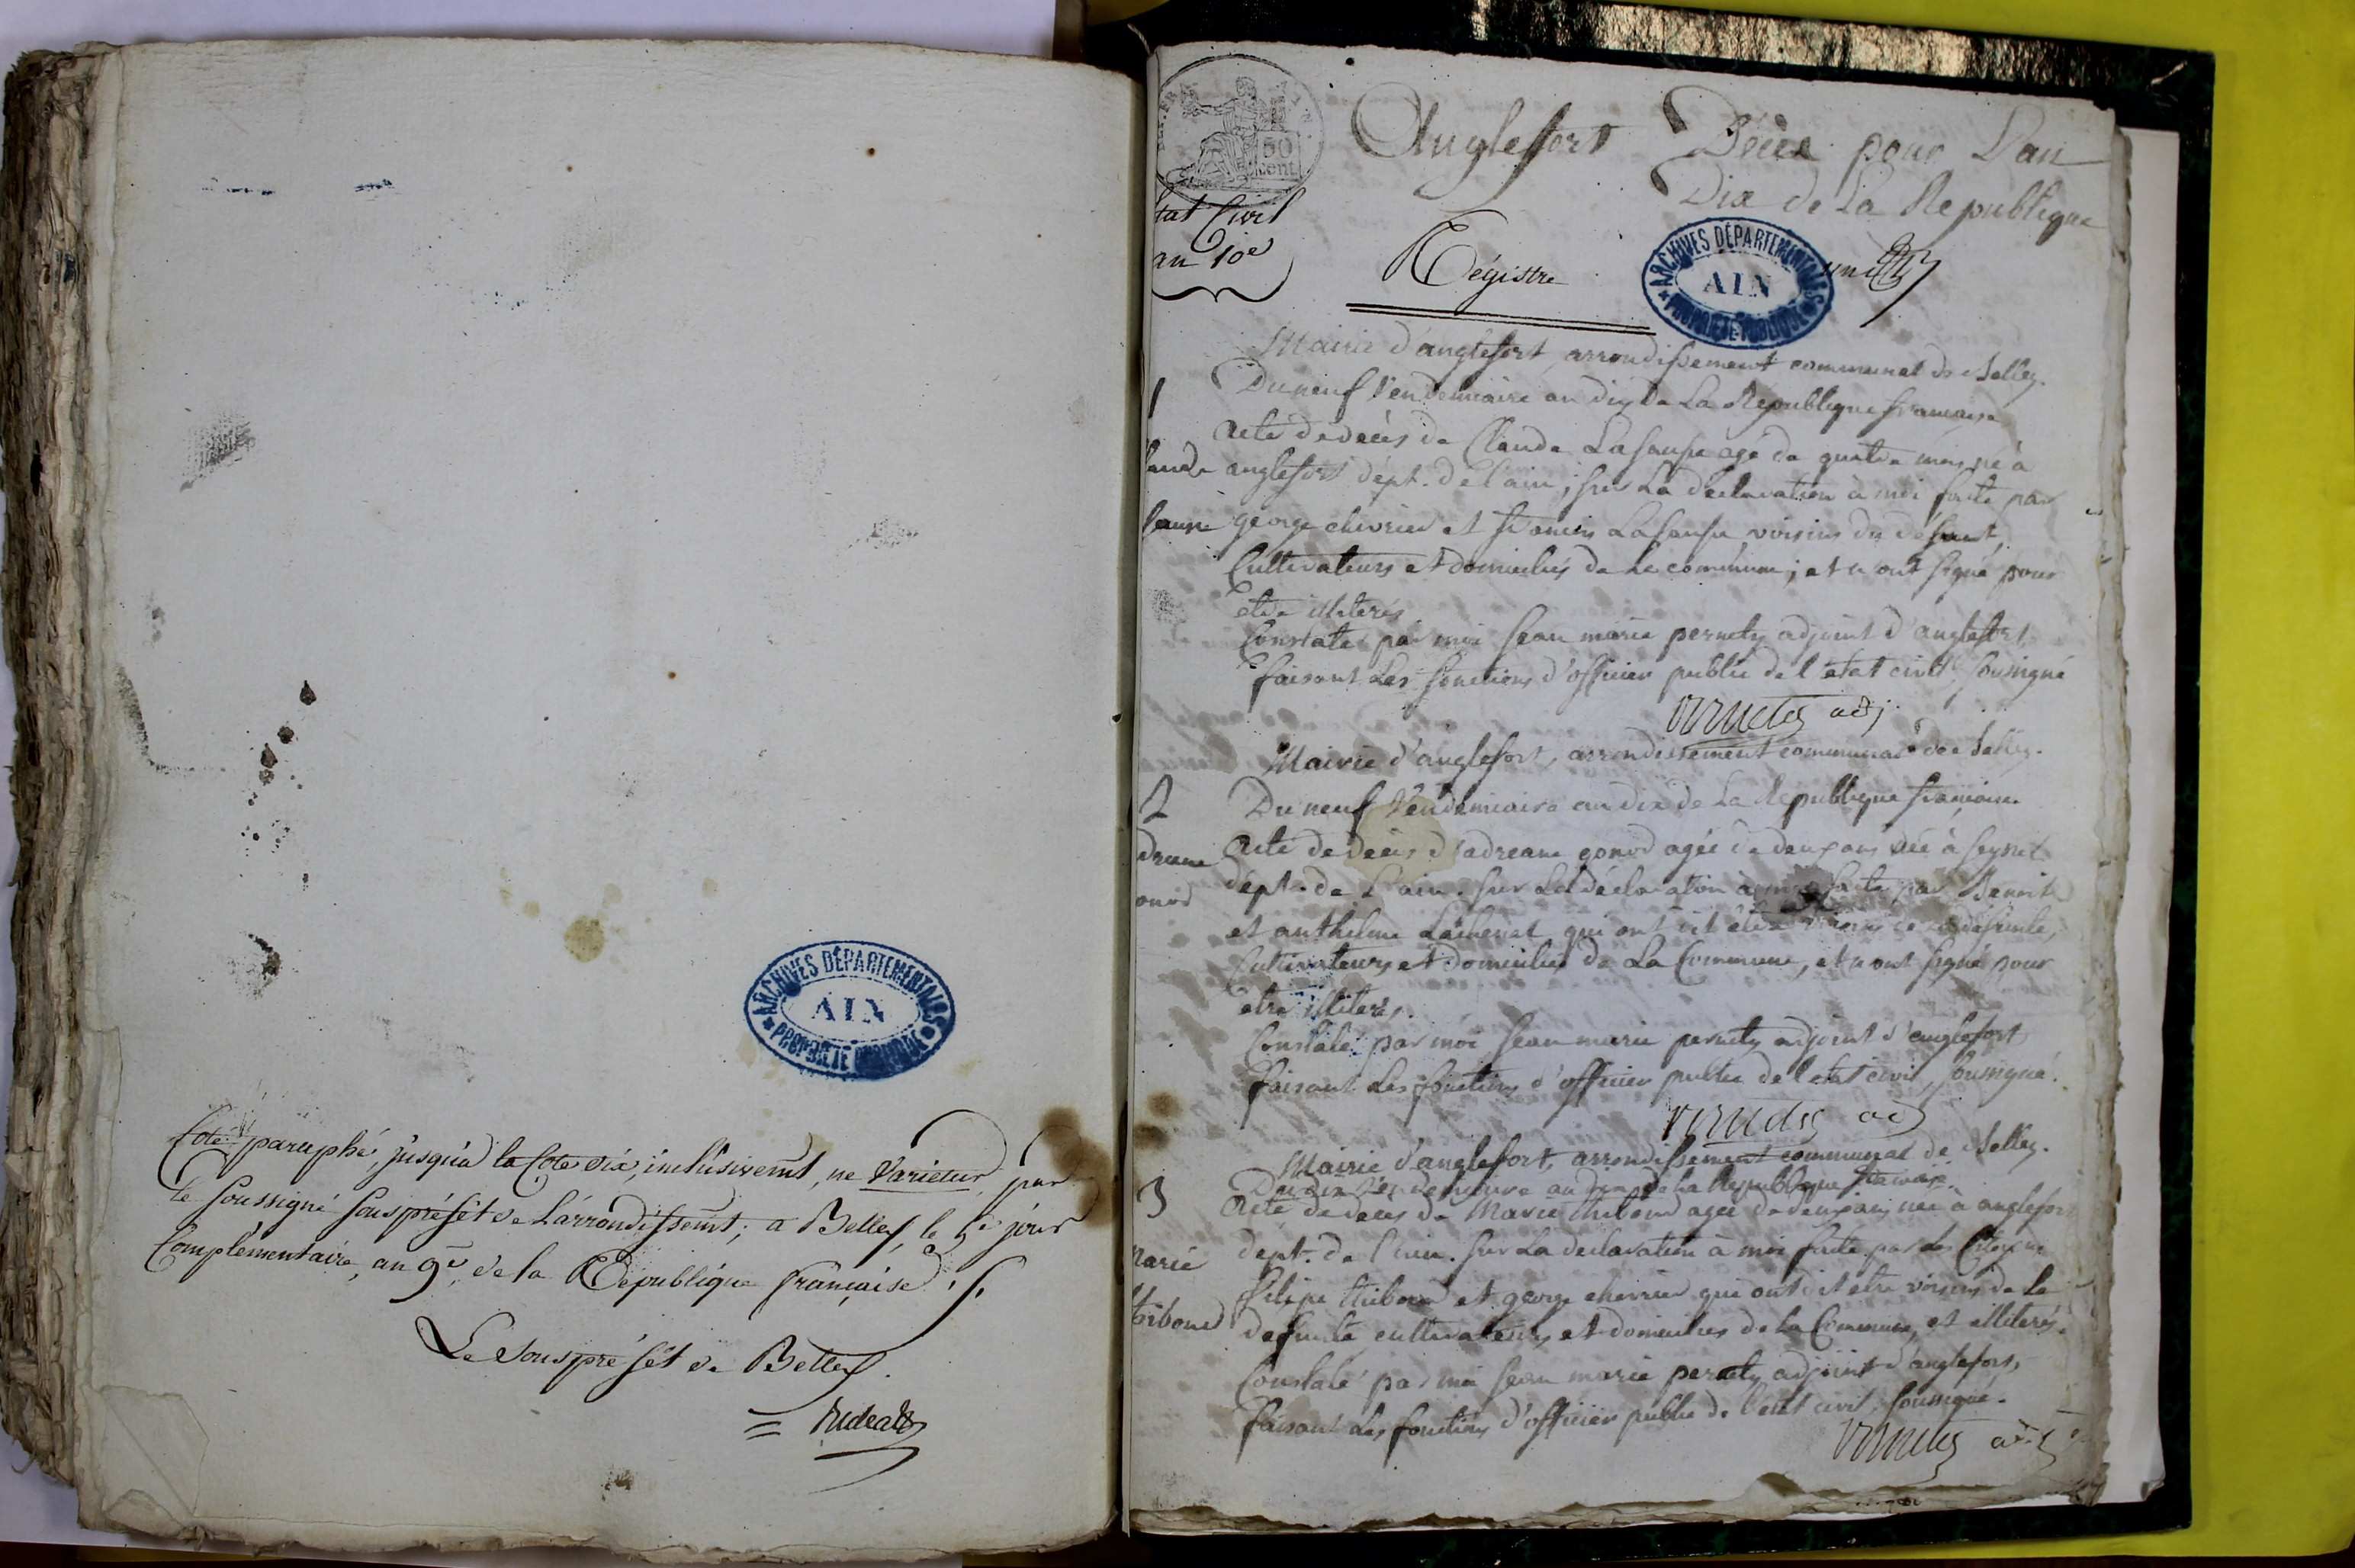 ARCHIVES DÉPARTEMENTALES
AIN
PROPRIÉTÉ PUBLIQUE
Coté paraphé, jusqu'à la Cote dix, inclusivemt, ne Varietur, par
le soussigné souspréfêt de L'arrondissemt; a Belley, le 5e jour
Complémentaire, an 9e, de la République française ./.
Le Souspréfêt de Belley.
50
cent
Anglefort Décès pour L'an
Dix de La Republique
tat Civil
an 10e
Régistre
ARCHIVES DÉPARTEMENTALES
AIN
PROPRIÉTÉ PUBLIQUE
Mairie d'anglefort, arrondissement communal de Belley.
1
Du neuf Vendemiaire an dix de La Republique francaise
Acte de decès de Claude Lasausse agé de quatre mois né à
laude anglefort dépt. de l'ain; sur La declaration à moi faite par
sausse george chevrier et francois Lasausse voisins du défunt
Cultivateurs et domiciliés de La commune; et n ont signé pour
etre illiterés
Constaté par moi Jean marie pernety adjoint d'anglefort
faisant Les fonctions d'officier public de l'état civil soussigné
adj.
Mairie d'anglefort, arrondissement communal de Belley.
2
Du neuf Vendemiaire an dix de La Republique francaise
Acte de decès d' gonod agée de deux ans née à
onod dépt. de L'ain. sur La déclaration à moi faite par Benoit
et anthelme qui ont dit être voisins de La défunte,
Cultivateurs et domiciliés de La Commune, et n ont signé pour
etre illiterés.
Constaté par moi Jean marie pernety adjoint d'anglefort
faisant Les fonctions d'officier public de l'etat civil, soussigné.
adj
Mairie d'anglefort, arrondissement communal de Belley.
3
Du dix Vendemiaire an dix de La Republique francaise.
Acte de deces de Marie thiboud agée de deux ans née à anglefort
Marie dept. de l'ain. sur La declaration à moi faite par les Citoyens
thiboud filipe thiboud et george chevrier qui ont dit etre voisins de La
defunte cultivateurs et domiciliés de La Commune, et illiterés.
Constaté par moi Jean marie pernety adjoint d'anglefort,
faisant Les fonctions d'officier public de l'état civil, soussigné.
adj